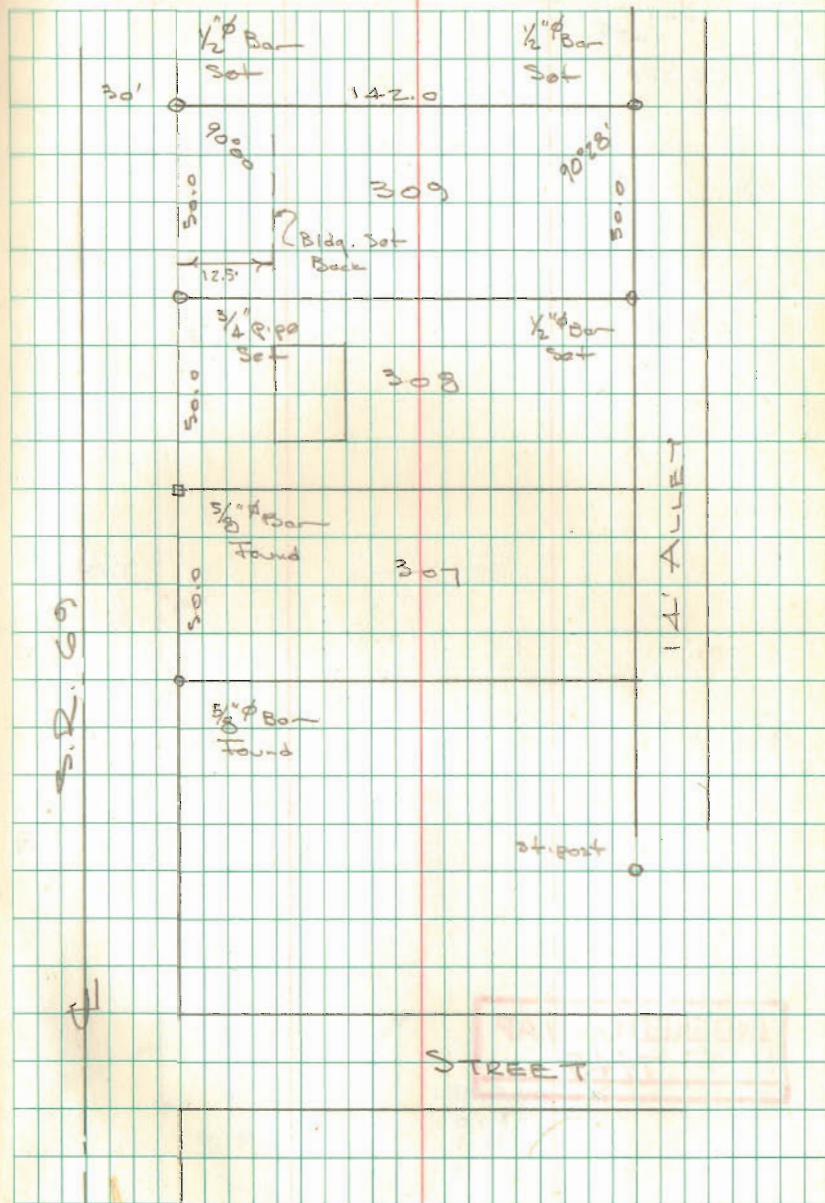 1/2"⌀ Bar
Set
1/2"⌀ Bar
Set
30'
142.0
90°00'
90°28'
50.0
309
50.0
Bldg. Set
Back
12.5'
3/4" pipe
Set
1/2"⌀ Bar
Set
308
50.0
5/8"⌀ Bar
Found
14' ALLEY
307
50.0
S.R. 69
5/8"⌀ Bar
Found
st. post
℄
STREET